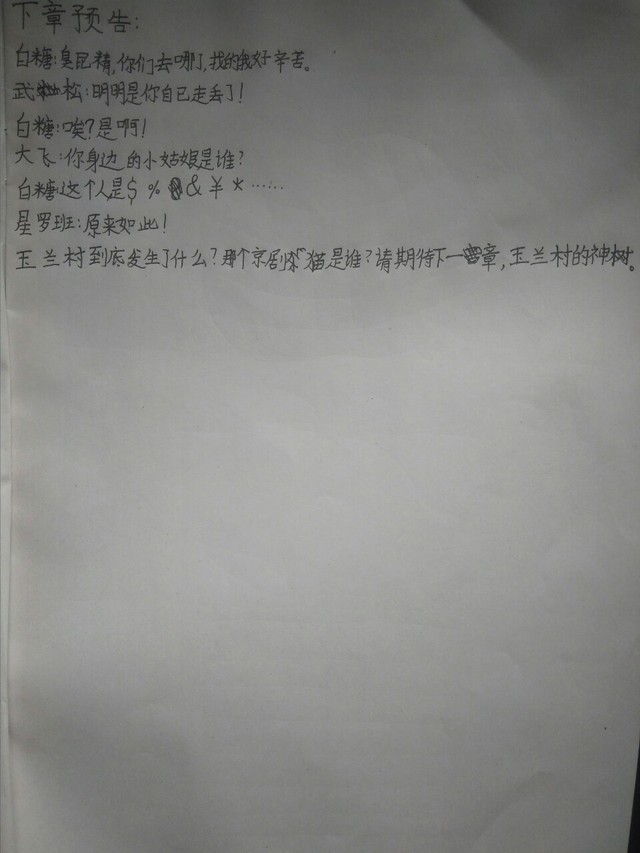 下章预告:
白糖:臭屁精,你们去哪了,找的我好辛苦。
武松:明明是你自己走丢了!
白糖:唉?是啊!
大飞:你身边的小姑娘是谁?
白糖:这个人是$ % & ¥ * ……
星罗班:原来如此!
玉兰村到底发生了什么?那个京剧猫是谁?请期待下一章,玉兰村的神树。